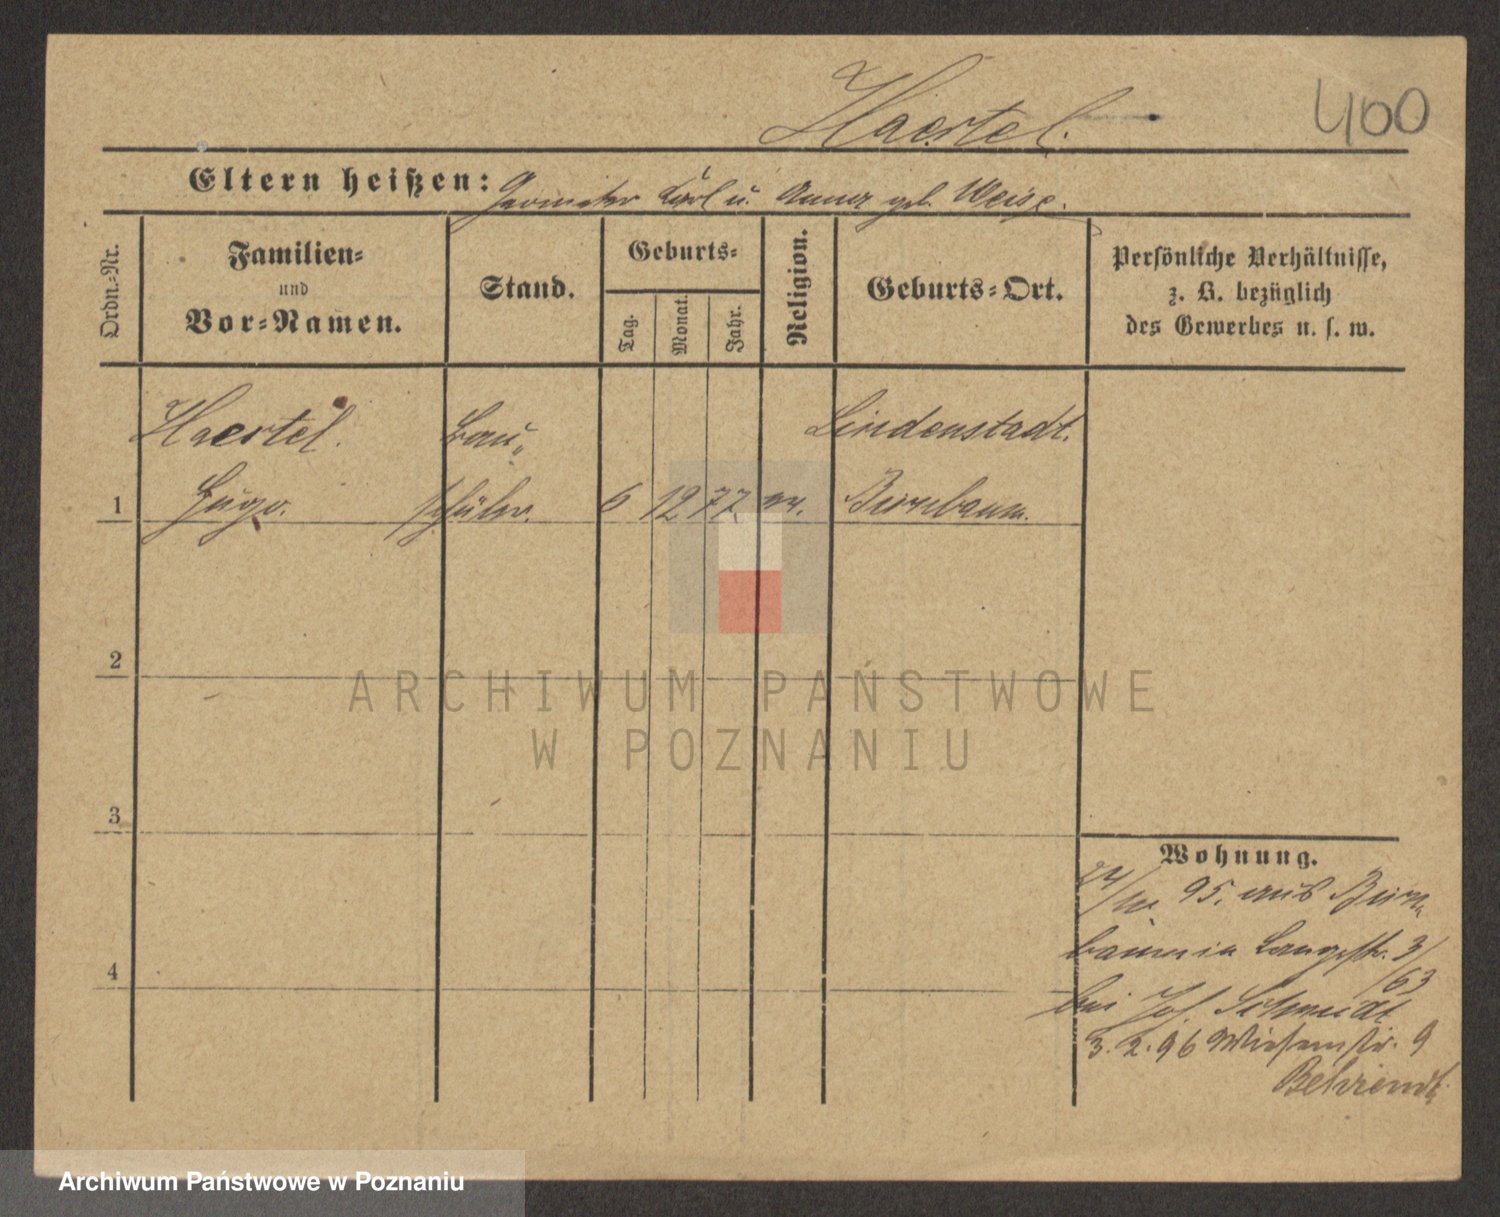 Haertel.
400
Eltern heißen: Geometer Carl u. Anna geb. Weise.
Ordn.-Nr.
Familien-
und
Vor-Namen.
Stand.
Geburts-
Tag.
Monat.
Jahr.
Religion.
Geburts-Ort.
Persönliche Verhältnisse,
z. B. bezüglich
des Gewerbes u. s. w.
Haertel. Bau- Lindenstadt.
1 Hugo. schüler. 6 12 77 ev. Birnbaum.
2
3
4
ARCHIWUM PAŃSTWOWE
W POZNANIU
Wohnung.
24/ 95. aus Birn-
baum in Langestr. 3/
63
bei Jos. Schmidt
3. 2. 96 Wiesenstr. 9
Behrendt
Archiwum Państwowe w Poznaniu